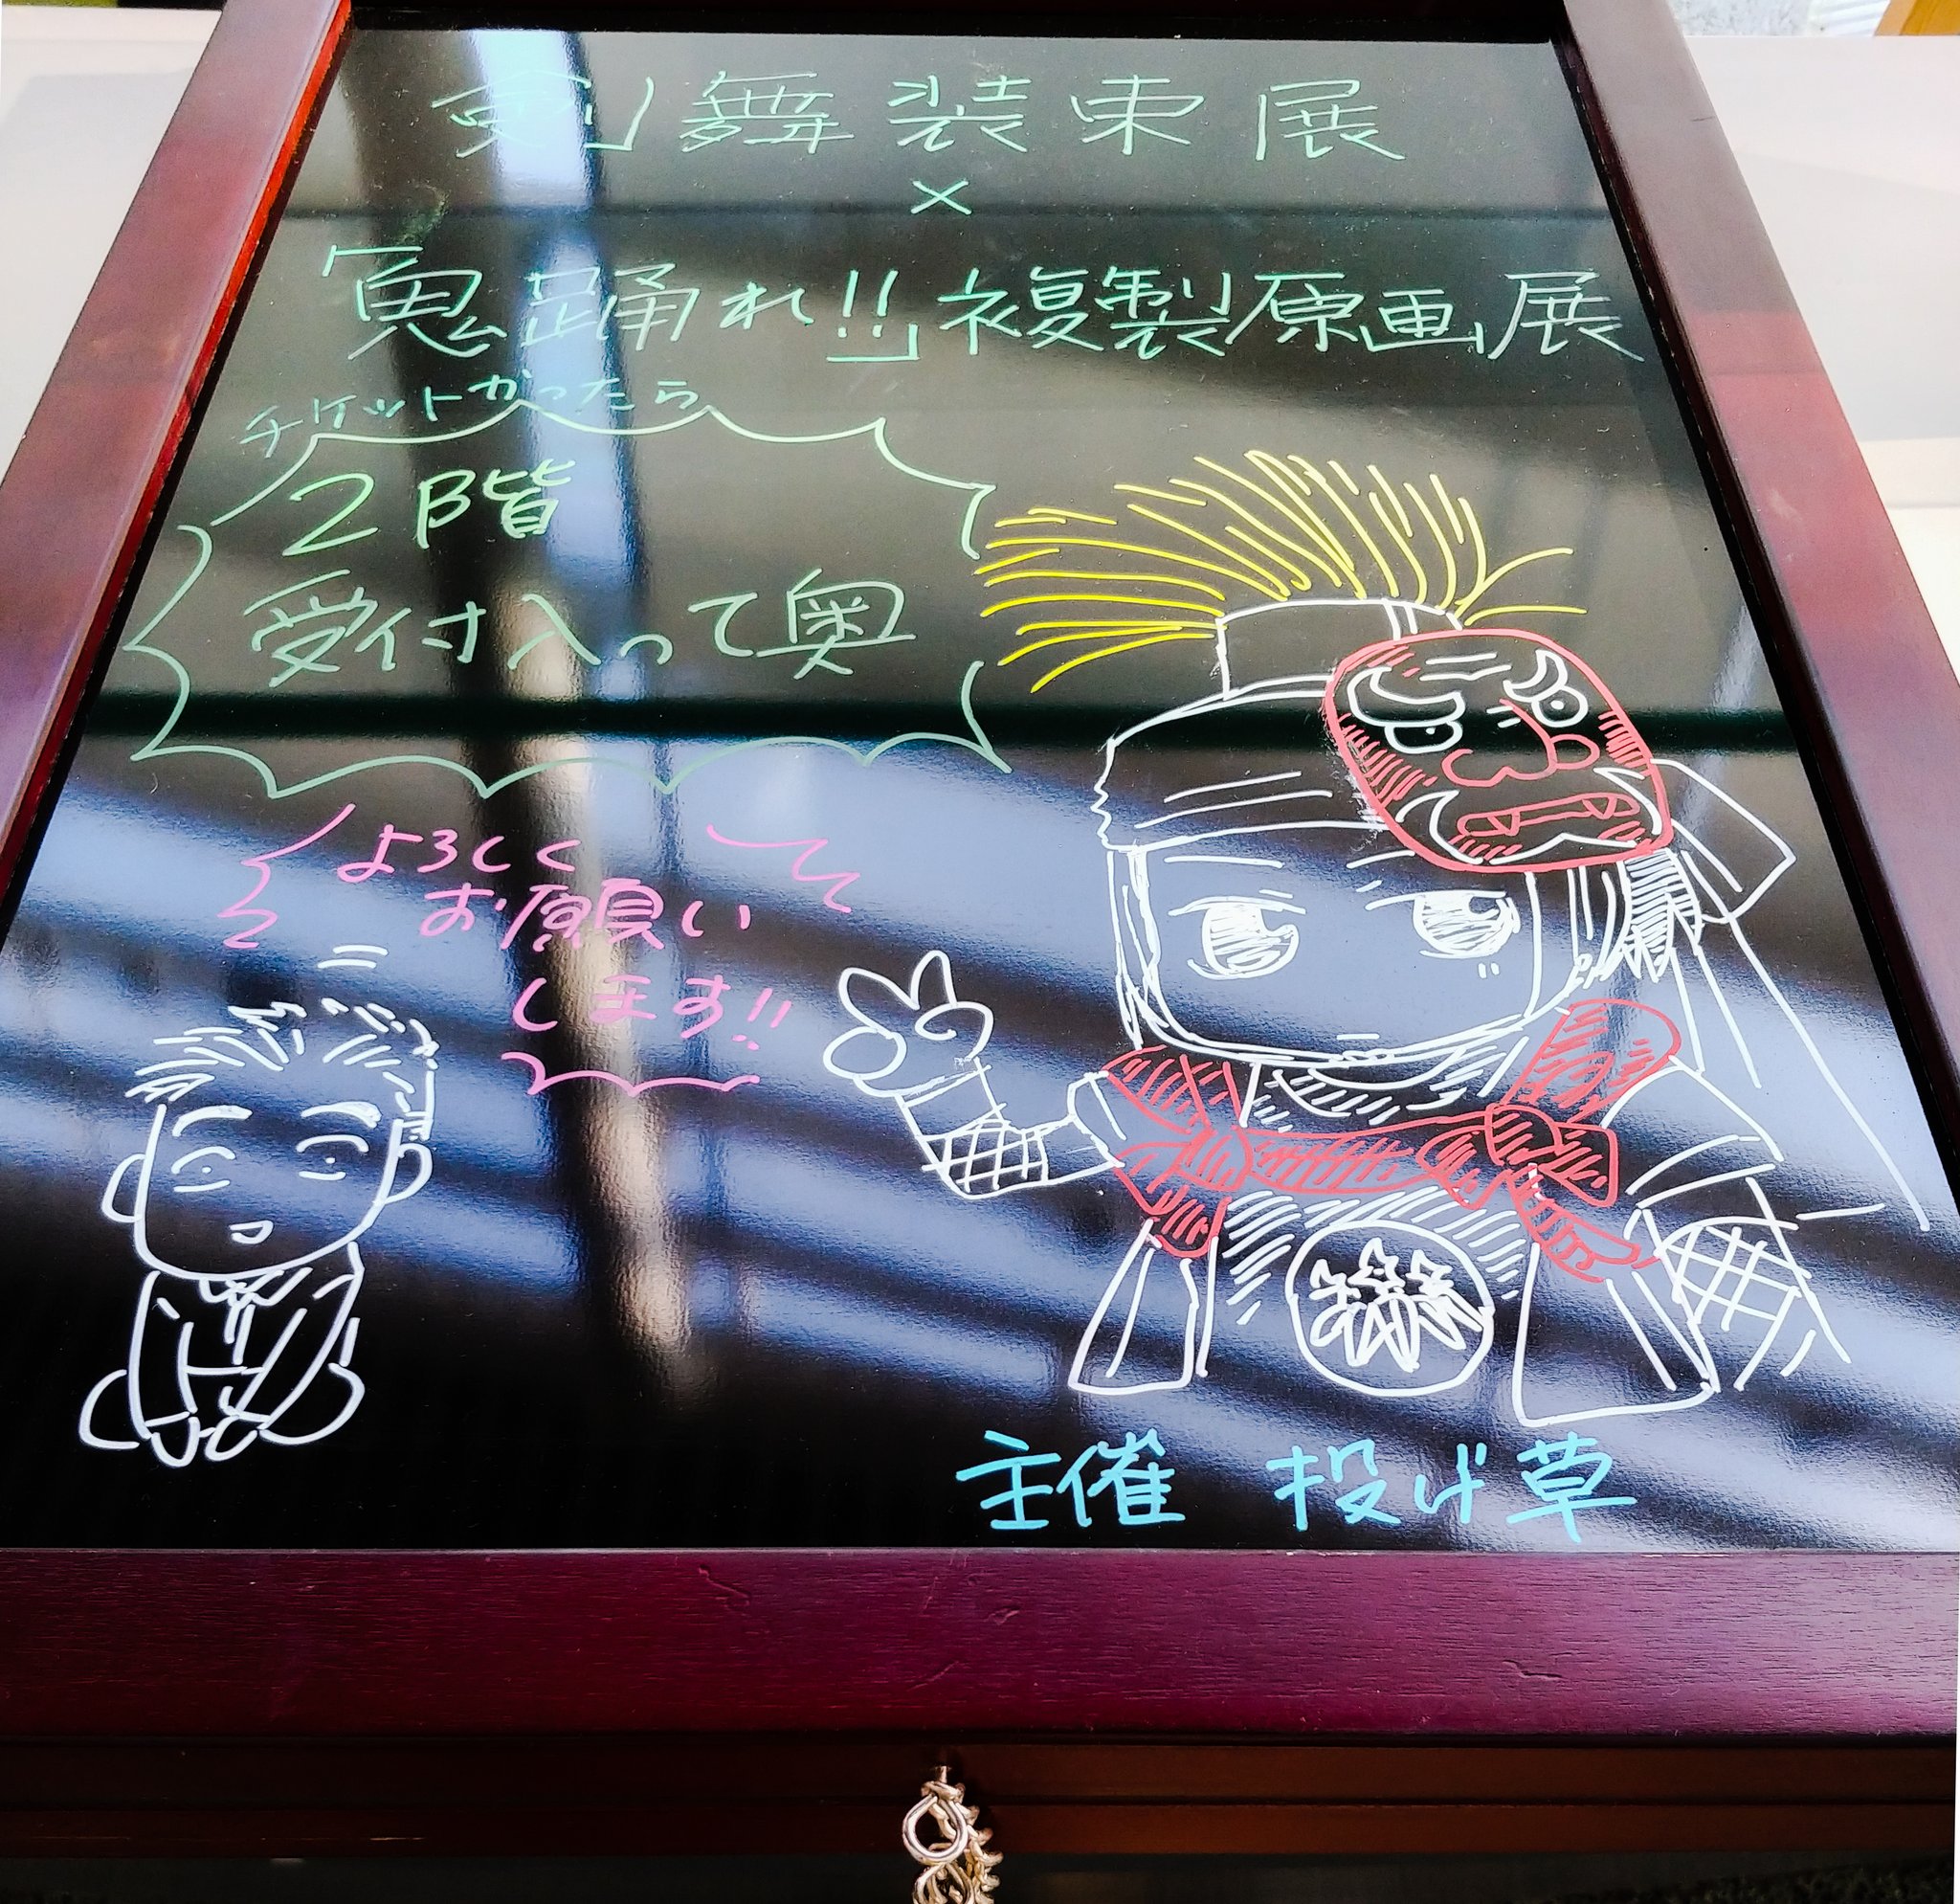 剣舞装束展
×
「鬼踊れ!!」複製原画展
チケットかったら
2階
受付入って奥
よろしく
お願い
します!!
主催 投げ草